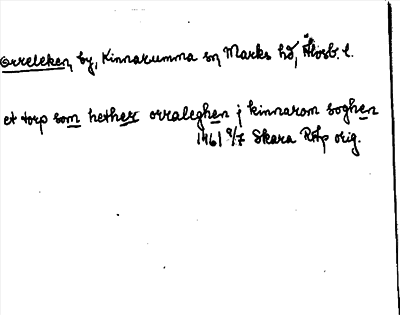 Orreleken, by, Kinnarumma sn, Marks hd, Älvsb. l.
et torp som hether orraleghen j kinnarom soghen
1461 9/7 Skara Råp orig.